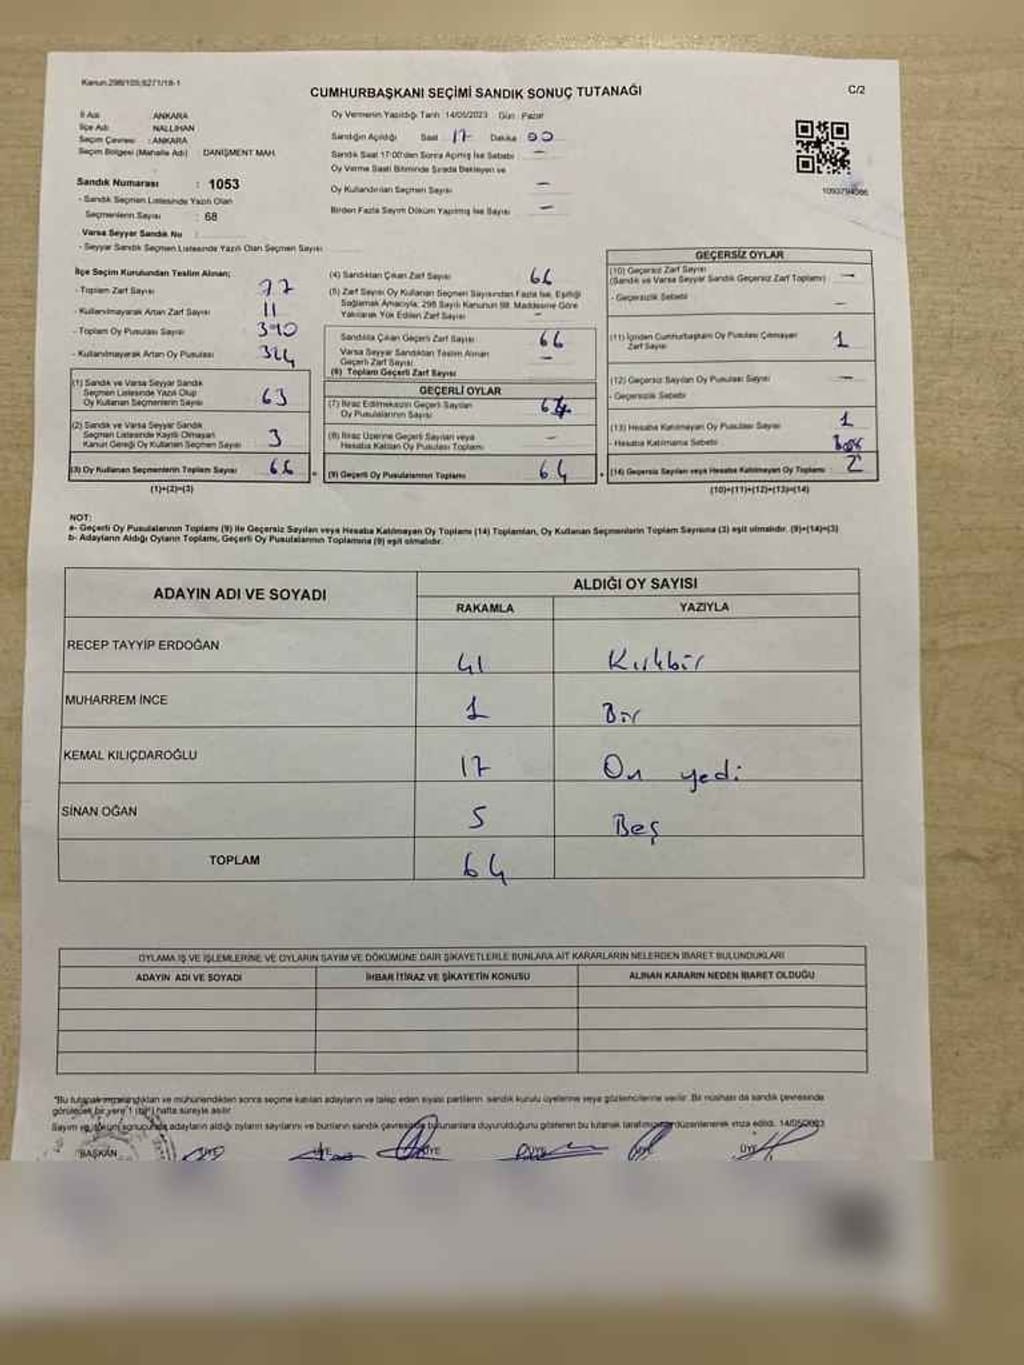 Kanun:298/105;6271/18-1
CUMHURBAŞKANI SEÇİMİ SANDIK SONUÇ TUTANAĞI
C/2
İl Adı : ANKARA
İlçe Adı : NALLIHAN
Seçim Çevresi : ANKARA
Seçim Bölgesi (Mahalle Adı) : DANIŞMENT MAH.
Oy Vermenin Yapıldığı Tarih : 14/05/2023 Gün : Pazar
Sandığın Açıldığı Saat 17 Dakika 00
Sandık Saat 17:00'den Sonra Açılmış İse Sebebi —
Oy Verme Saati Bitiminde Sırada Bekleyen ve
Oy Kullandırılan Seçmen Sayısı —
Birden Fazla Sayım Döküm Yapılmış İse Sayısı —
Sandık Numarası : 1053
- Sandık Seçmen Listesinde Yazılı Olan
Seçmenlerin Sayısı : 68
Varsa Seyyar Sandık No :
- Seyyar Sandık Seçmen Listesinde Yazılı Olan Seçmen Sayısı
İlçe Seçim Kurulundan Teslim Alınan;
- Toplam Zarf Sayısı 77
- Kullanılmayarak Artan Zarf Sayısı 11
- Toplam Oy Pusulası Sayısı 390
- Kullanılmayarak Artan Oy Pusulası 324
(1) Sandık ve Varsa Seyyar Sandık
Seçmen Listesinde Yazılı Olup
Oy Kullanan Seçmenlerin Sayısı 63
(2) Sandık ve Varsa Seyyar Sandık
Seçmen Listesinde Kayıtlı Olmayan
Kanun Gereği Oy Kullanan Seçmen Sayısı 3
(3) Oy Kullanan Seçmenlerin Toplam Sayısı 66
(1)+(2)=(3)
(4) Sandıktan Çıkan Zarf Sayısı 66
(5) Zarf Sayısı Oy Kullanan Seçmen Sayısından Fazla İse, Eşitliği
Sağlamak Amacıyla; 298 Sayılı Kanunun 98. Maddesine Göre
Yakılarak Yok Edilen Zarf Sayısı —
Sandıkta Çıkan Geçerli Zarf Sayısı 66
Varsa Seyyar Sandıktan Teslim Alınan
Geçerli Zarf Sayısı —
(6) Toplam Geçerli Zarf Sayısı
GEÇERLİ OYLAR
(7) İtiraz Edilmeksizin Geçerli Sayılan
Oy Pusulalarının Sayısı 64
(8) İtiraz Üzerine Geçerli Sayılan veya
Hesaba Katılan Oy Pusulası Toplamı —
= (9) Geçerli Oy Pusulalarının Toplamı 64
GEÇERSİZ OYLAR
(10) Geçersiz Zarf Sayısı —
(Sandık ve Varsa Seyyar Sandık Geçersiz Zarf Toplamı)
- Geçersizlik Sebebi —
(11) İçinden Cumhurbaşkanı Oy Pusulası Çıkmayan
Zarf Sayısı 1
(12) Geçersiz Sayılan Oy Pusulası Sayısı —
- Geçersizlik Sebebi
(13) Hesaba Katılmayan Oy Pusulası Sayısı 1
- Hesaba Katılmama Sebebi Boş
+ (14) Geçersiz Sayılan veya Hesaba Katılmayan Oy Toplamı 2
(10)+(11)+(12)+(13)=(14)
NOT:
a- Geçerli Oy Pusulalarının Toplamı (9) ile Geçersiz Sayılan veya Hesaba Katılmayan Oy Toplamı (14) Toplamları, Oy Kullanan Seçmenlerin Toplam Sayısına (3) eşit olmalıdır. (9)+(14)=(3)
b- Adayların Aldığı Oyların Toplamı, Geçerli Oy Pusulalarının Toplamına (9) eşit olmalıdır.
ADAYIN ADI VE SOYADI
ALDIĞI OY SAYISI
RAKAMLA YAZIYLA
RECEP TAYYİP ERDOĞAN 41 Kırkbir
MUHARREM İNCE 1 Bir
KEMAL KILIÇDAROĞLU 17 On yedi
SİNAN OĞAN 5 Beş
TOPLAM 64
OYLAMA İŞ VE İŞLEMLERİNE VE OYLARIN SAYIM VE DÖKÜMÜNE DAİR ŞİKAYETLERLE BUNLARA AİT KARARLARIN NELERDEN İBARET BULUNDUKLARI
ADAYIN ADI VE SOYADI İHBAR İTİRAZ VE ŞİKAYETİN KONUSU ALINAN KARARIN NEDEN İBARET OLDUĞU
"Bu tutanak imzalandıktan ve mühürlendikten sonra seçime katılan adayların ve talep eden siyasi partilerin sandık kurulu üyelerine veya gözlemcilerine verilir. Bir nüshası da sandık çevresinde
görülecek bir yere 1 (bir) hafta süreyle asılır.
Sayım ve döküm sonucunda adayların aldığı oyların sayılarını ve bunların sandık çevresinde bulunanlara duyurulduğunu gösteren bu tutanak tarafımızca düzenlenerek imza edildi. 14/05/2023
BAŞKAN ÜYE ÜYE ÜYE ÜYE ÜYE